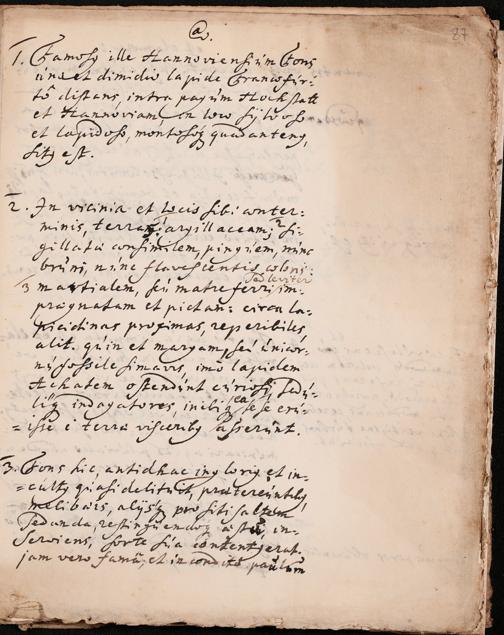 @.
27
1. Famosus ille Hannoviensium Fons
uno et dimidio lapide Francofur-
to distans, intra pagum Hochstatt
et Hannoviam in loco sylvoso
et lapidoso, montosoq quadanteng
situs est.
2. In vicinia et locis sibi conter-
minis, terram argillaceam si-
gillatae consimilem, pinguem, nunc
bruni, nunc flavescentis coloris
sed leviter
3 martialem, seu matre ferri im-
praegnatam et pictam: circa la-
picidinas proximas, reperibiles
alit. quin et margam, seu unicor-
nu fossile simavis, imo lapidem
Achatem ostendunt curiosi, sedu-
liq indagatores, in
= isse e terrae visceribus asserunt.
3. Fons hic, antidhac inglorius et in-
= cultus quasi delituit, praetereuntibus
melibaeis, alysq pro siti saltem
sedanda, restinguendoq aestu, in-
serviens, sorte sua contentus erat.
jam vero fama, et incondito paulum